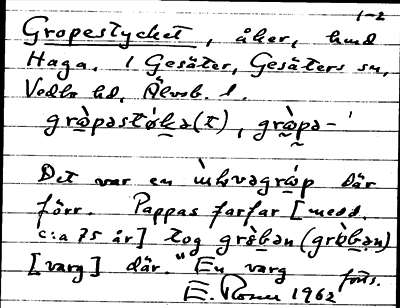 1-2
Gropestycket, åker, hmd
Haga. 1 Gesäter, Gesäters sn,
Vedbo hd, Älvsb. l.
grὼpəstók̬ə(t), grὼpə-
Det var en ùlvəgrὼp där
förr. Pappas farfar [medd.
c:a 75 år] tog grὸbən (grὸbən)
[varg] där. "En varg
forts.
E. Rosen 1962